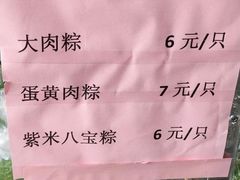 大肉粽 6元/只
蛋黄肉粽 7元/只
紫米八宝粽 6元/只